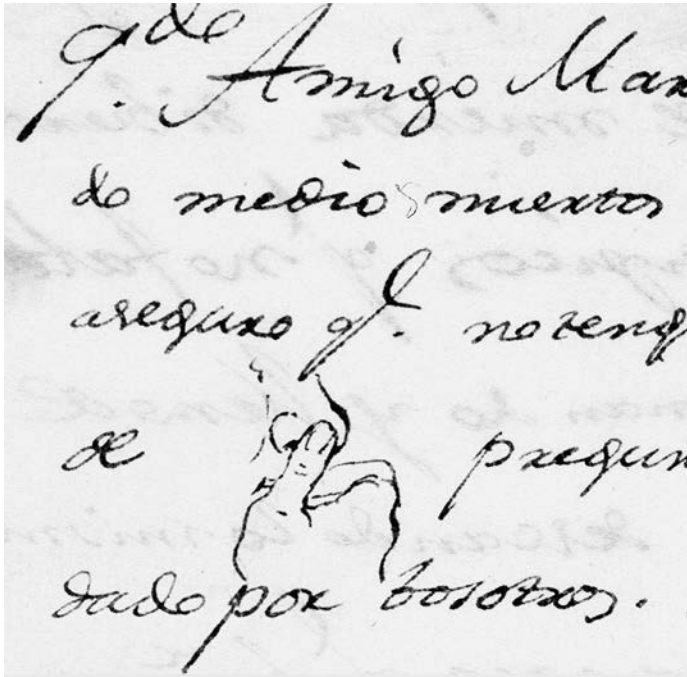 q.do Amigo Mar
de medios muertos
aseguro q.e no teng
de pregun
dado por bosotros.